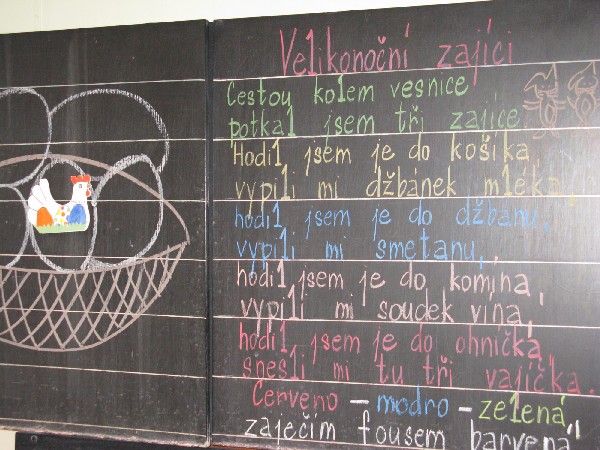 Velikonoční zajíci
Cestou kolem vesnice
potkal jsem tři zajíce
Hodil jsem je do košíka,
vypili mi džbánek mléka,
hodil jsem je do džbanu,
vypili mi smetanu,
hodil jsem je do komína,
vypili mi soudek vína,
hodil jsem je do ohníčka,
snesli mi tu tři vajíčka.
Červeno - modro - zelená,
zaječím fousem barvená